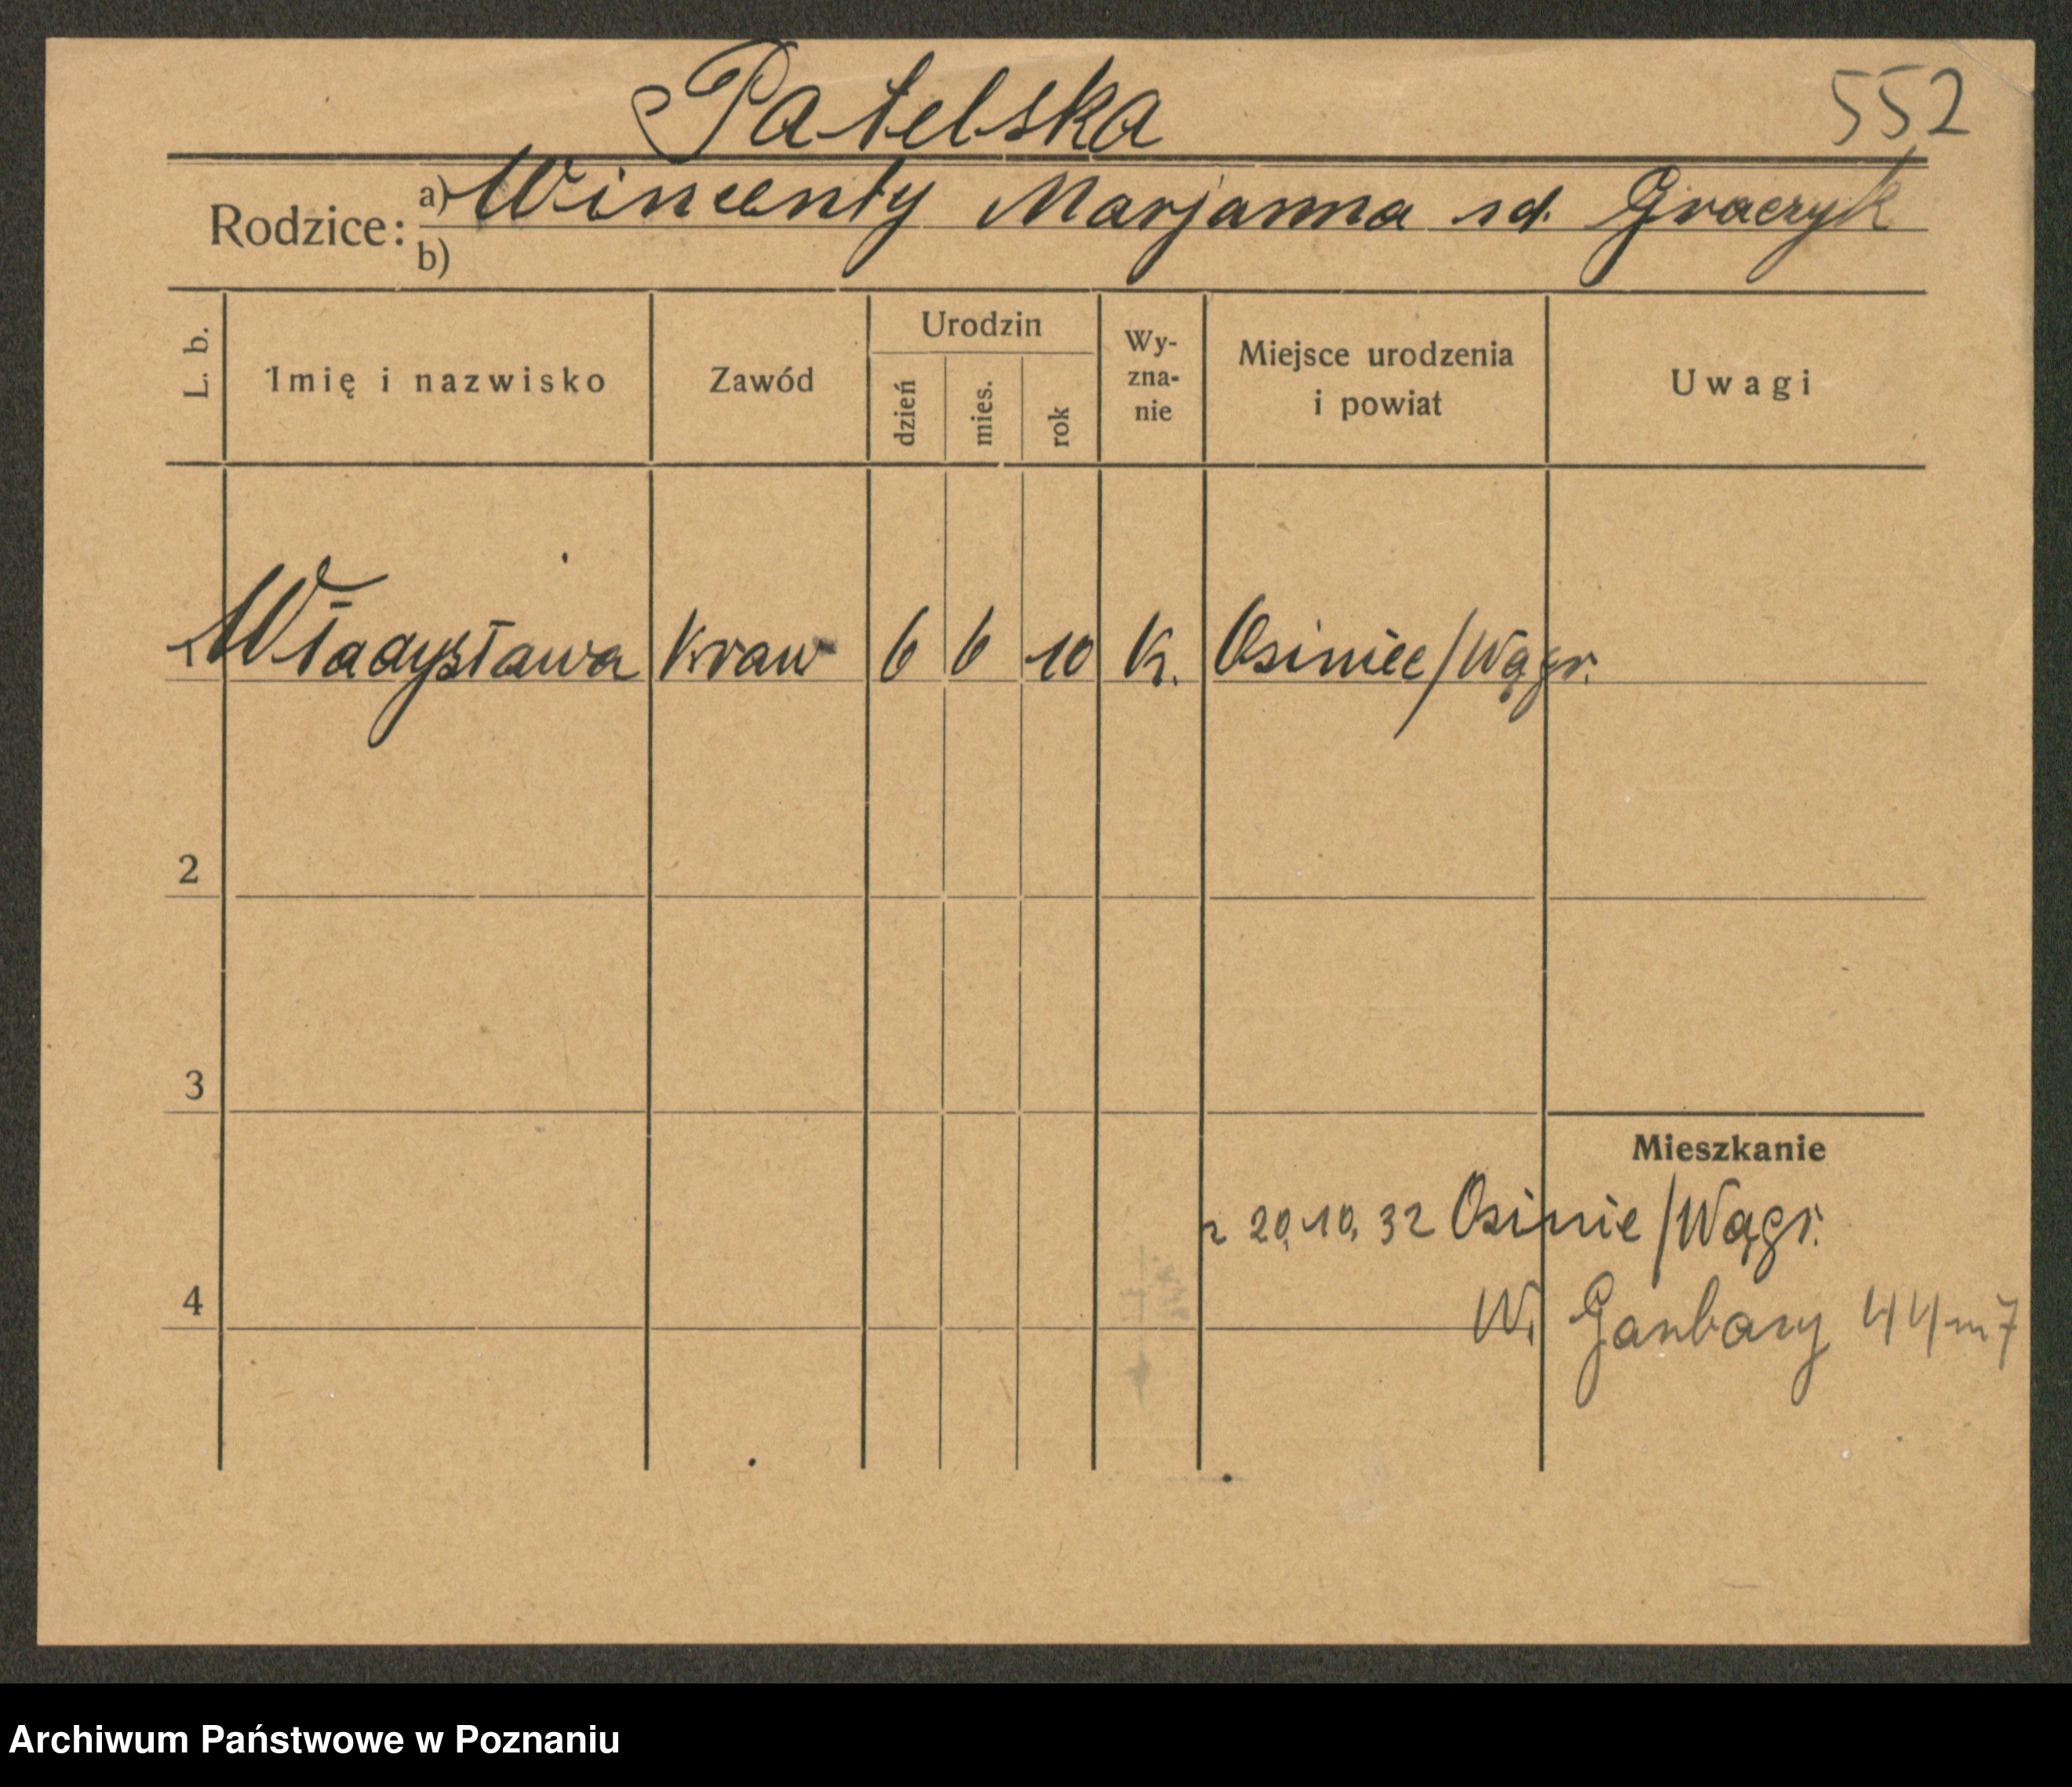 Patelska
552
Rodzice:
a) Wincenty Marjanna sd. Graczyk
b)
L. b.
Imię i nazwisko
Zawód
Urodzin
dzień
mies.
rok
Wy-
zna-
nie
Miejsce urodzenia
i powiat
Uwagi
1 Władysława Kraw 6 6 10 K. Osiniec/Wągr.
2
3
Mieszkanie
z 20.10.32 Osinie/Wągr.
4
W. Garbary 44 m 7
Archiwum Państwowe w Poznaniu